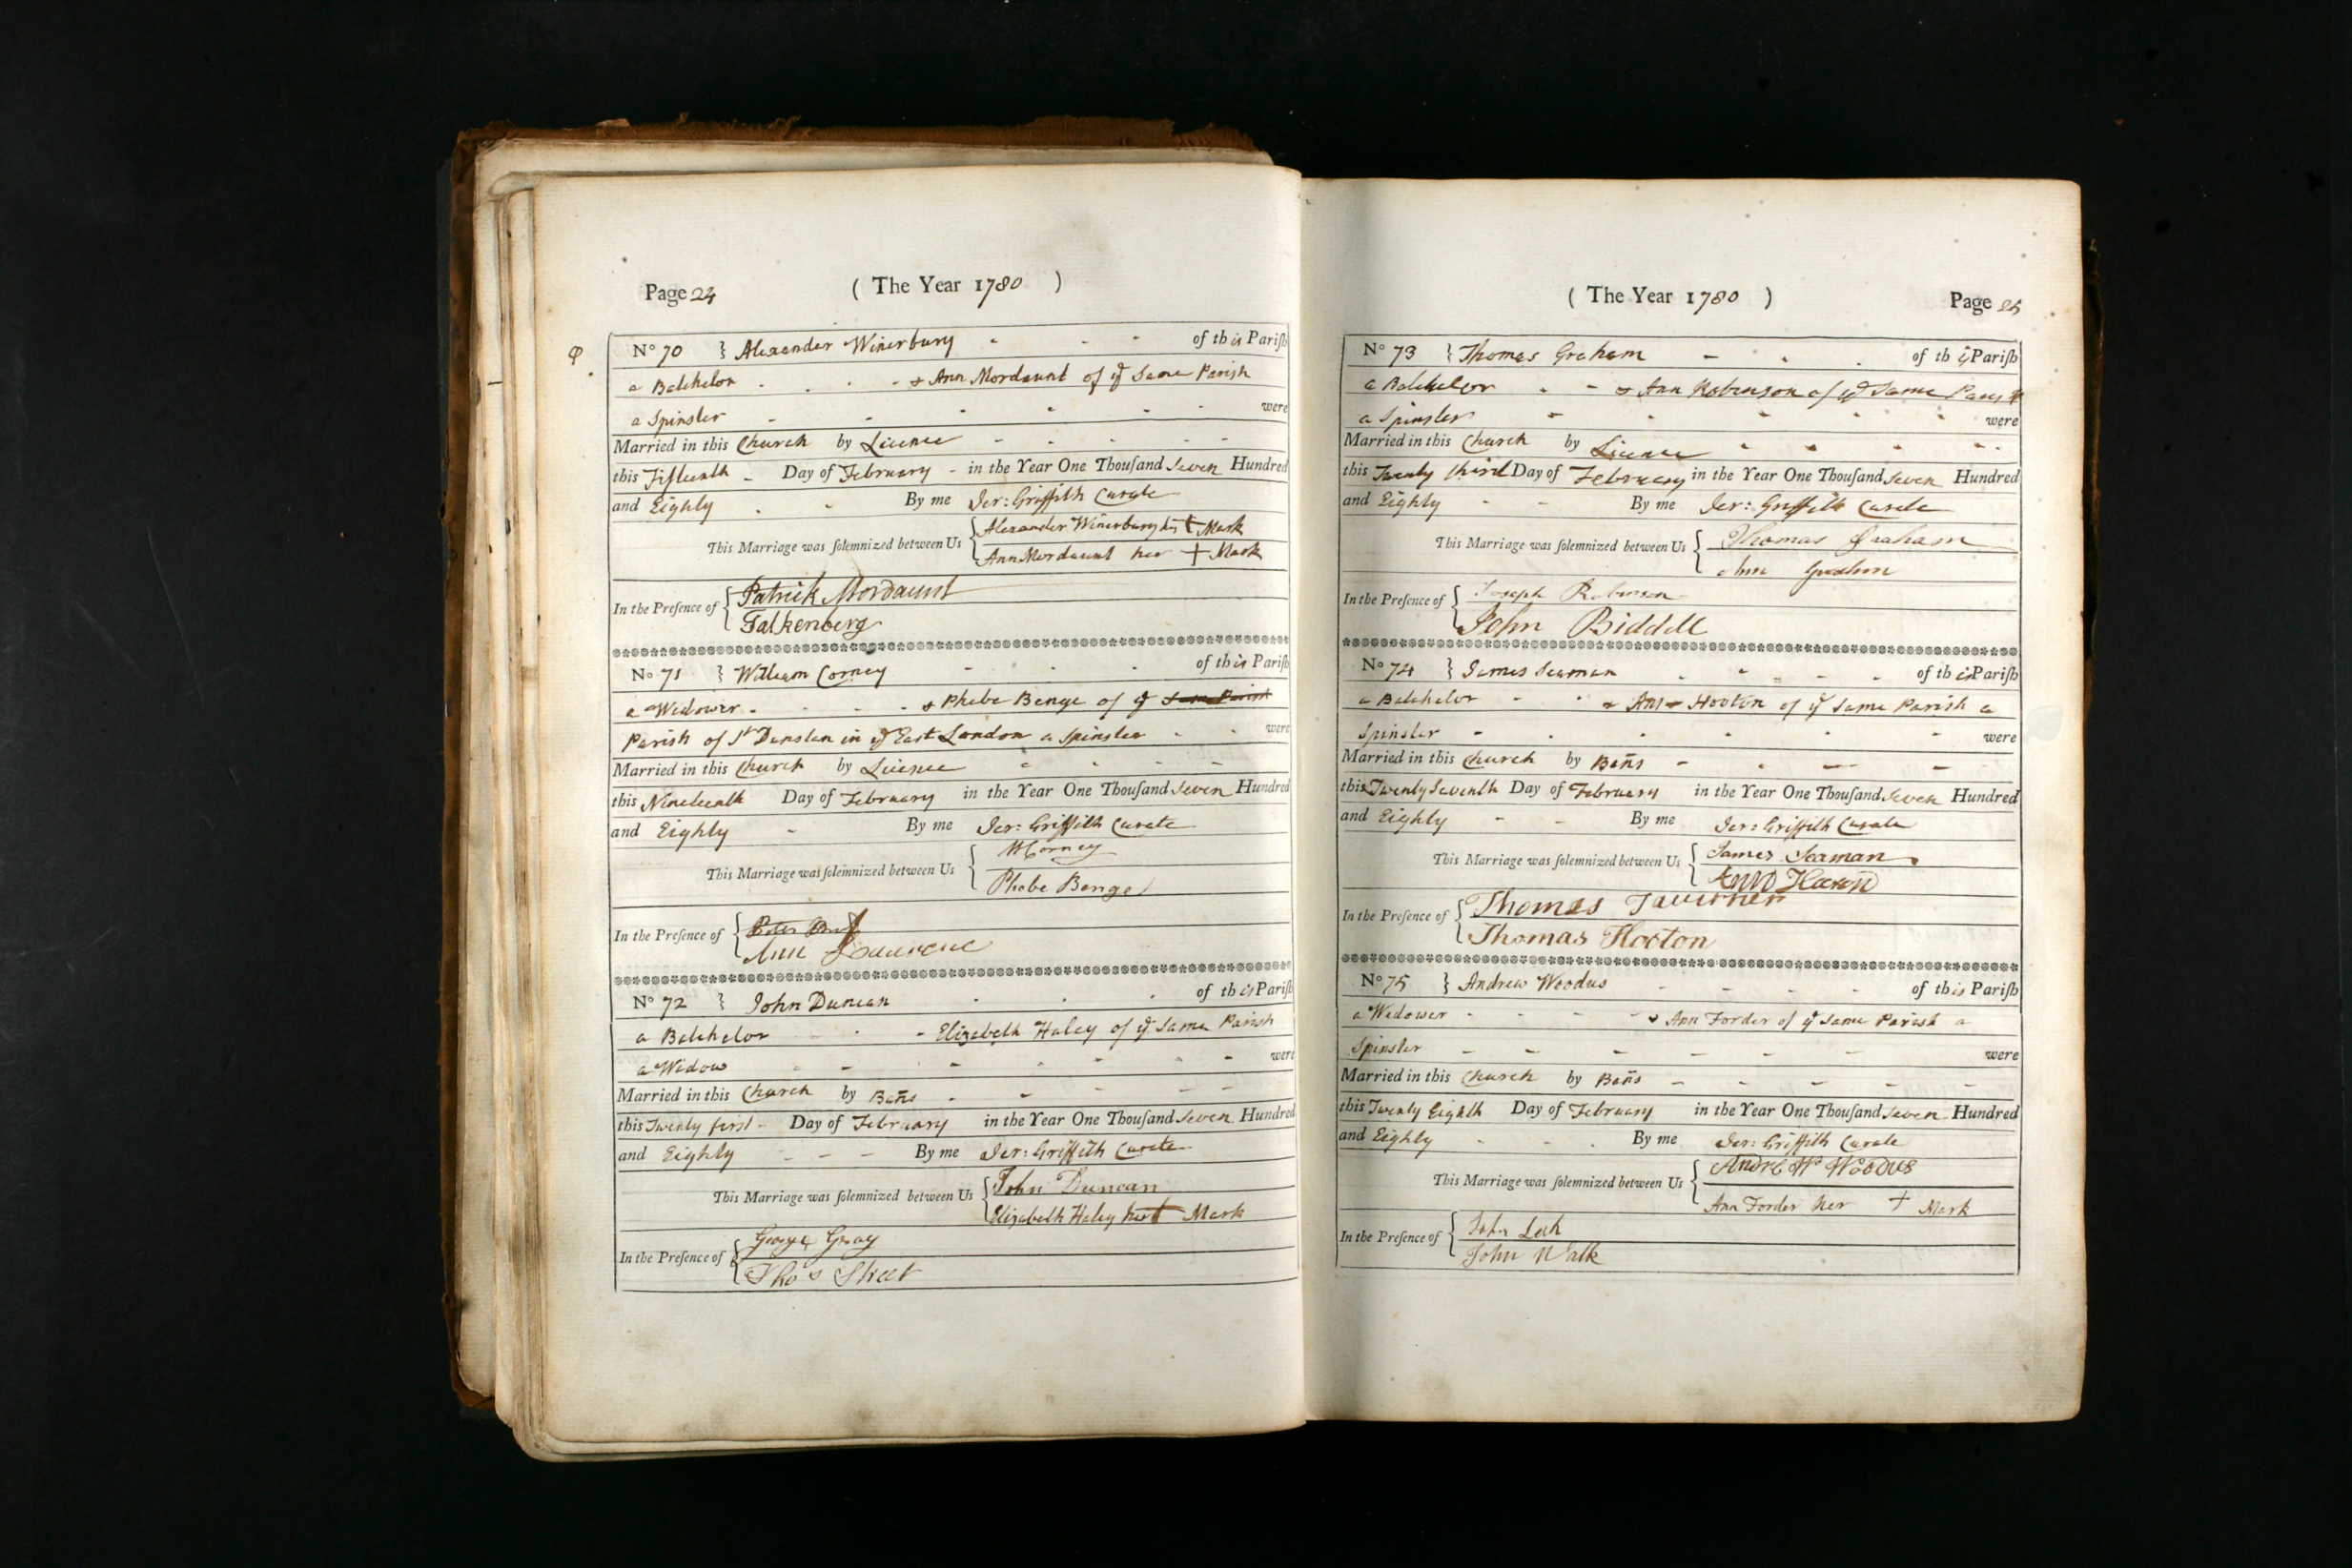 Page 24 ( The Year 1780 )
No 70 } Alexander Winerbury - - - of this Parish
a Batchelor - - - & Ann Mordaunt of ye Same Parish
a Spinster - - - - - - were
Married in this Church by Licence - - - - -
this Fifteenth - Day of February - in the Year One Thousand Seven Hundred
and Eighty - - By me Jer: Griffith Curate
This Marriage was solemnized between Us { Alexander Winerbury his + Mark
Ann Mordaunt her + Mark
In the Presence of { Patrick Mordaunt
Falkenberg
No 71 } William Corney - - - of this Parish
a Widower - - - - & Phebe Benge of ye Same Parish
Parish of St Dunstan in ye East London a Spinster - - were
Married in this Church by Licence - - - -
this Nineteenth Day of February in the Year One Thousand Seven Hundred
and Eighty - By me Jer: Griffith Curate
This Marriage was solemnized between Us { W Corney
Phebe Benge
In the Presence of {
Ann
No 72 } John Duncan - - - of this Parish
a Batchelor - - - Elizabeth Haley of ye Same Parish
a Widow - - - - - - - were
Married in this Church by Bans - - - - -
this Twenty first - Day of February in the Year One Thousand Seven Hundred
and Eighty - - - By me Jer: Griffith Curate
This Marriage was solemnized between Us { John Duncan
Elizabeth Haley her + Mark
In the Presence of { George Gray
Thos Street
( The Year 1780 ) Page 25
No 73 } Thomas Graham - - - of this Parish
a Batchelor - - & Ann Robinson of ye Same Parish
a Spinster - - - - - were
Married in this Church by Licence - - - - -
this Twenty third Day of February in the Year One Thousand Seven Hundred
and Eighty - - By me Jer: Griffith Curate
This Marriage was solemnized between Us { Thomas Graham
Ann
In the Presence of { Joseph Robinson
John Biddell
No 74 } James Seaman - - - - - of this Parish
a Batchelor - - & Ann Hooton of ye Same Parish a
Spinster - - - - - - were
Married in this Church by Bans - - - -
this Twenty Seventh Day of February in the Year One Thousand Seven Hundred
and Eighty - - By me Jer: Griffith Curate
This Marriage was solemnized between Us { James Seaman
Ann
In the Presence of { Thomas Taverner
Thomas Hooton
No 75 } Andrew Woodus - - - - of this Parish
a Widower - - - - & Ann Forder of ye Same Parish a
Spinster - - - - - - were
Married in this Church by Bans - - - - -
this Twenty Eighth Day of February in the Year One Thousand Seven Hundred
and Eighty - - - By me Jer: Griffith Curate
This Marriage was solemnized between Us { Andrew Woodus
Ann Forder her + Mark
In the Presence of { John
John Walk